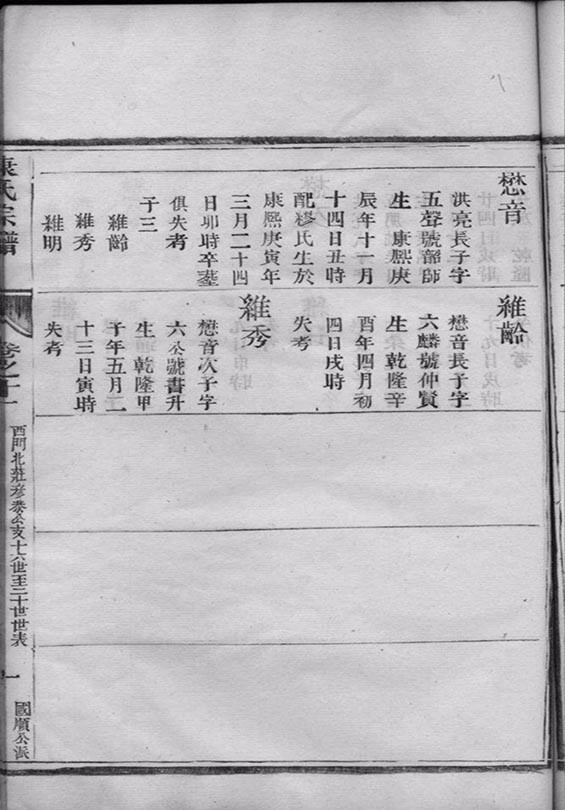 懋音
洪亮長子字
五聲號韶師
生 康熙庚
辰年十一月
十四日丑時
配穆氏生於
康熙庚寅年
三月二十四
日卯時卒塟
俱失考
子三
維齡
維秀
維明
維齡
懋音長子字
六麟號仲賢
生乾隆辛
酉年四月初
四日戌時
失考
維秀
懋音次子字
六公號書升
生 乾隆甲
子年五月二
十三日寅時
失考
氏宗譜
卷之十一
西門北莊彦泰公亥十六世至二十世世表
一
國順公派